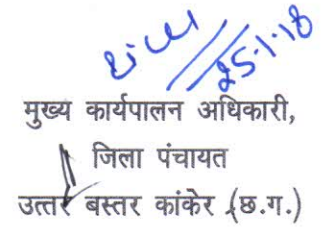 25.1.18
मुख्य कार्यपालन अधिकारी,
जिला पंचायत
उत्तर बस्तर कांकेर (छ.ग.)